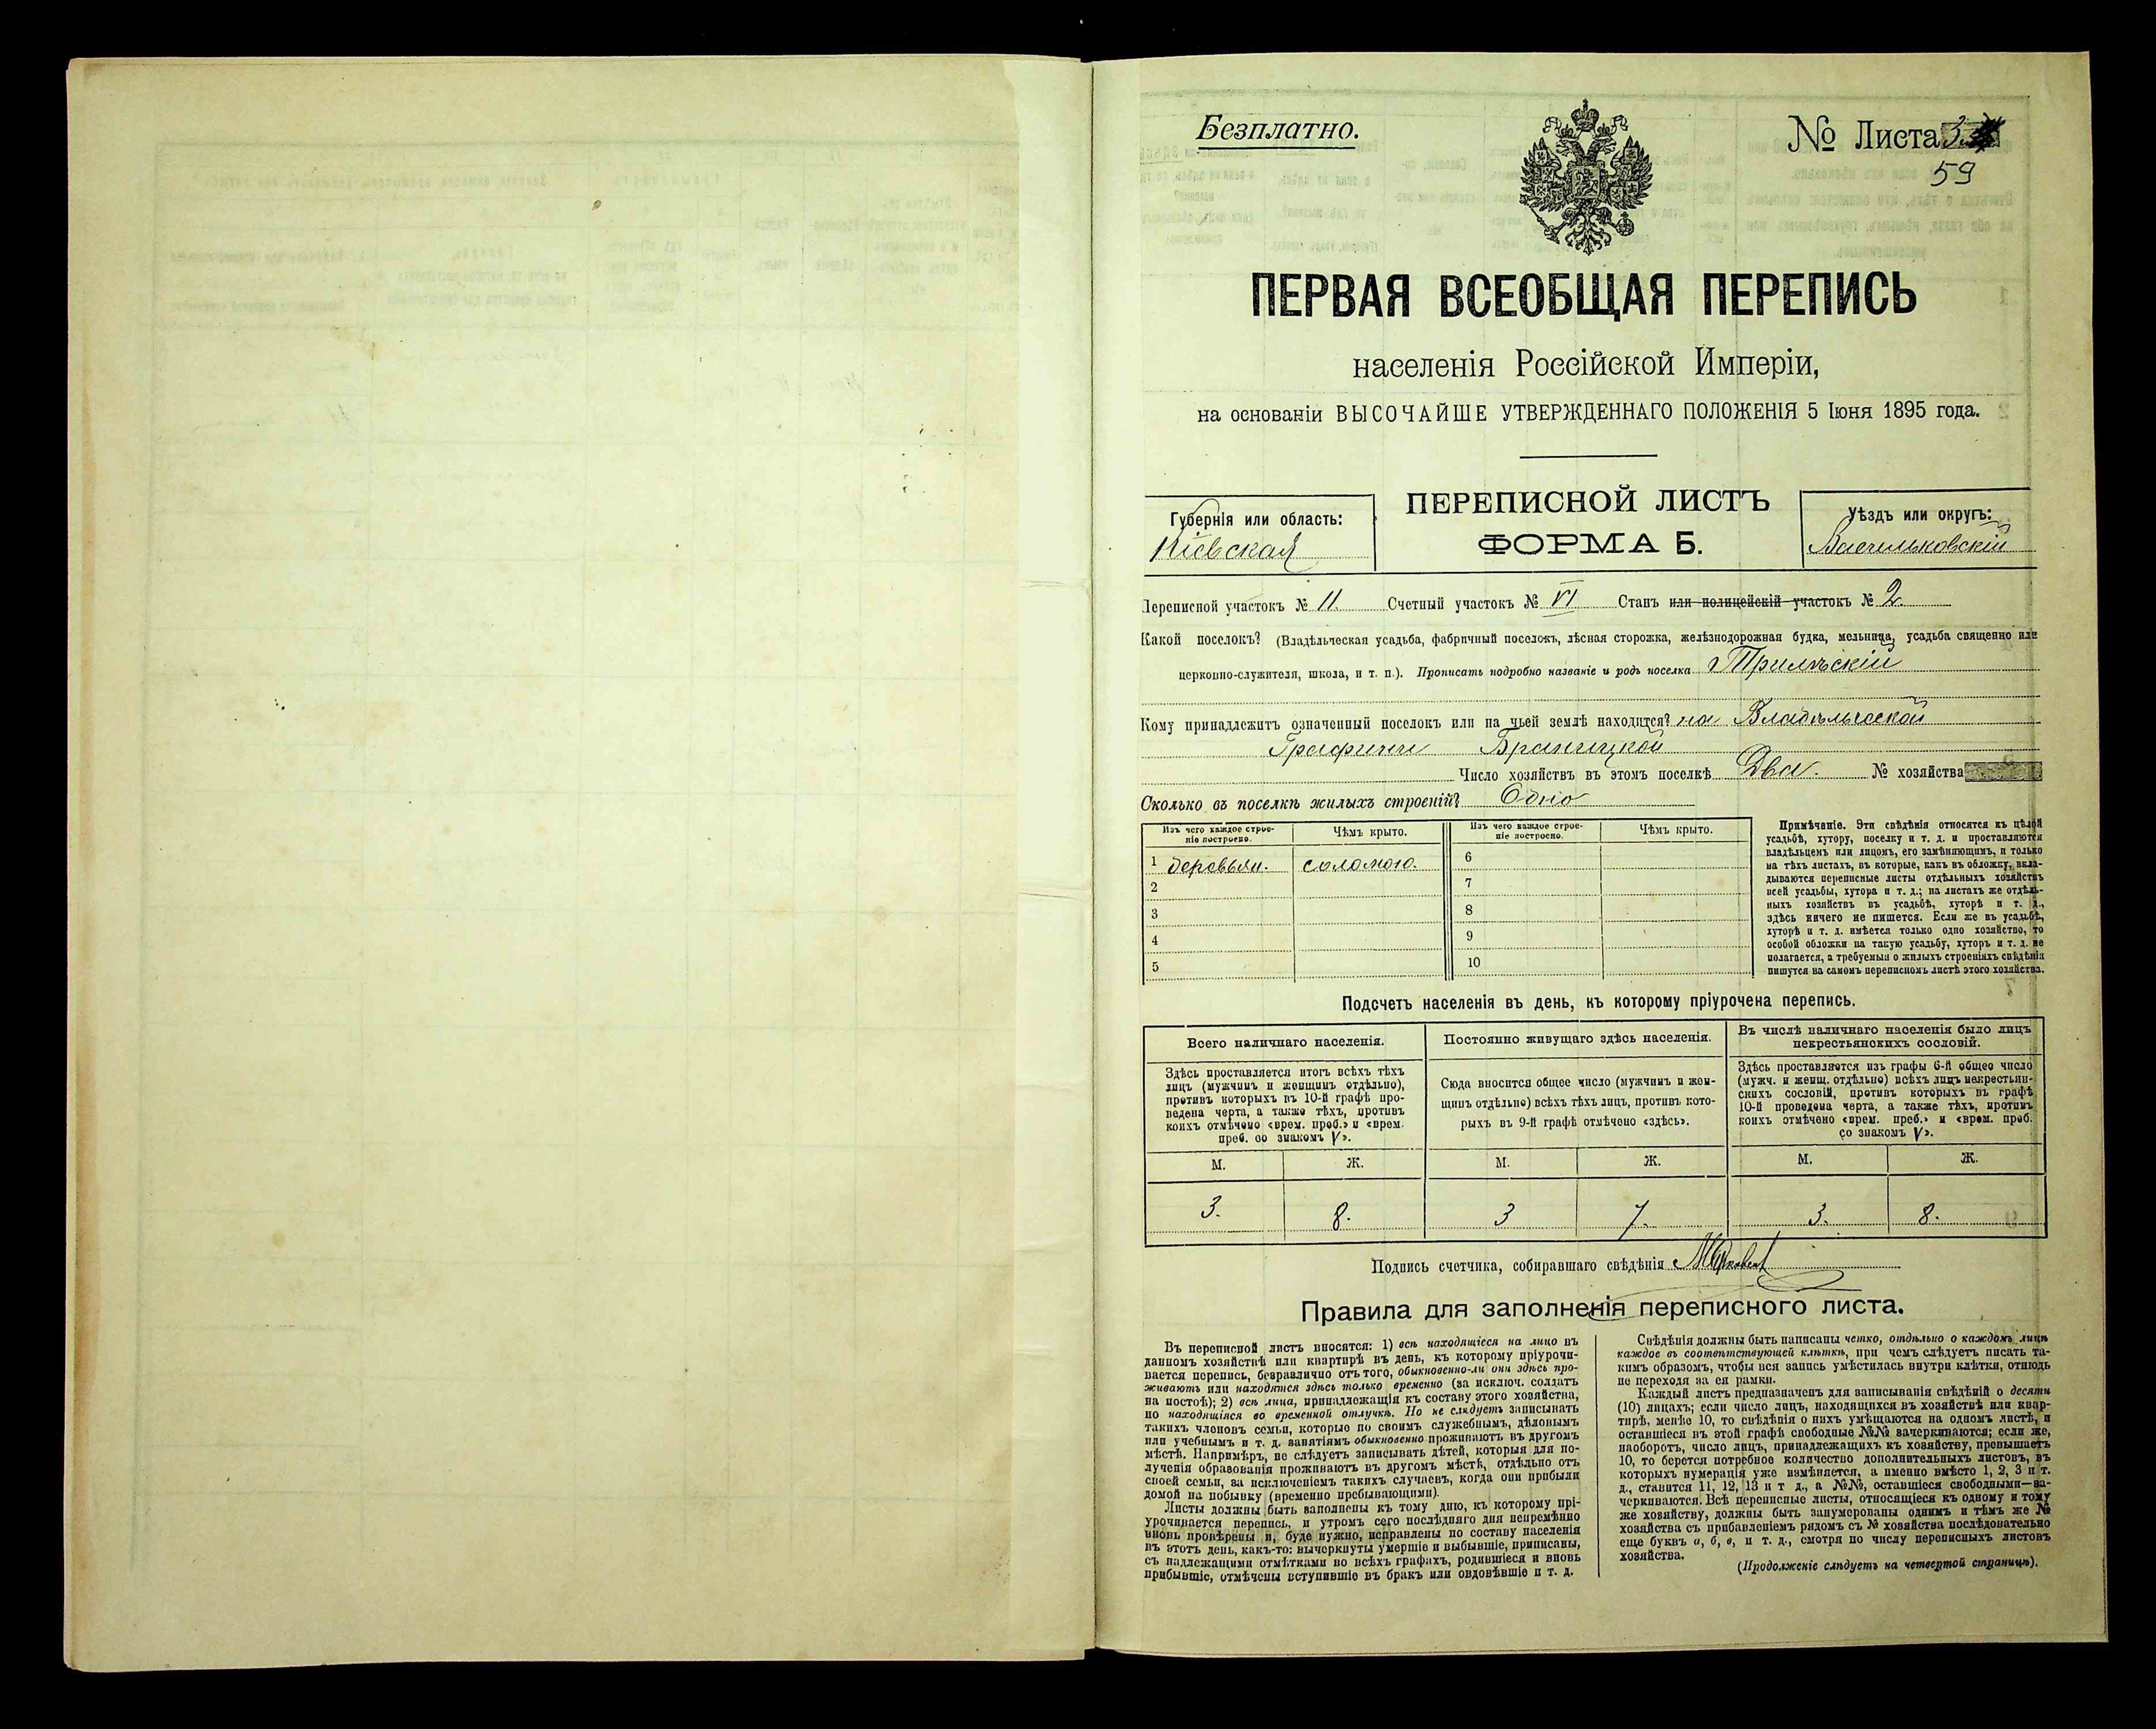 Безплатно.
№ Листа 3
59
ПЕРВАЯ ВСЕОБЩАЯ ПЕРЕПИСЬ
населенія Россійской Имперіи,
на основаніи ВЫСОЧАЙШЕ УТВЕРЖДЕННАГО ПОЛОЖЕНІЯ 5 Іюня 1895 года.
ПЕРЕПИСНОЙ ЛИСТЪ
ФОРМА Б.
Губернія или область:
Кіевская
Уѣздъ или округъ:
Васильковскій
Переписной участокъ № 11. Счетный участокъ № VI Станъ или полицейскій участокъ № 2.
Какой поселокъ? (Владѣльческая усадьба, фабричный поселокъ, лѣсная сторожка, желѣзнодорожная будка, мельница, усадьба священно или
церковно-служителя, школа, и т. п.). Прописать подробно названіе и родъ поселка Трилѣскій
Кому принадлежитъ означенный поселокъ или на чьей землѣ находится? на Владѣльческой
Графини Браницкой
Число хозяйствъ въ этомъ поселкѣ Два. № хозяйства
Сколько въ поселкѣ жилыхъ строеній? Одно
Изъ чего каждое строе-
ніе построено.
Чѣмъ крыто.
Изъ чего каждое строе-
ніе построено.
Чѣмъ крыто.
1 деревян. соломою. 6
2 7
3 8
4 9
5 10
Примѣчаніе. Эти свѣдѣнія относятся къ цѣлой
усадьбѣ, хутору, поселку и т. д. и проставляются
владѣльцемъ или лицомъ, его замѣняющимъ, и только
на тѣхъ листахъ, въ которые, какъ въ обложку, вкла-
дываются переписные листы отдѣльныхъ хозяйствъ
всей усадьбы, хутора и т. д.; на листахъ же отдѣль-
ныхъ хозяйствъ въ усадьбѣ, хуторѣ и т. д.,
здѣсь ничего не пишется. Если же въ усадьбѣ,
хуторѣ и т. д. имѣется только одно хозяйство, то
особой обложки на такую усадьбу, хуторъ и т. д. не
полагается, а требуемыя о жилыхъ строеніяхъ свѣдѣнія
пишутся на самомъ переписномъ листѣ этого хозяйства.
Подсчетъ населенія въ день, къ которому пріурочена перепись.
Всего наличнаго населенія.
Здѣсь проставляется итогъ всѣхъ тѣхъ
лицъ (мужчинъ и женщинъ отдѣльно),
противъ которыхъ въ 10-й графѣ про-
ведена черта, а также тѣхъ, противъ
коихъ отмѣчено «врем. преб.» и «врем.
преб. со знакомъ V».
Постоянно живущаго здѣсь населенія.
Сюда вносится общее число (мужчинъ и жен-
щинъ отдѣльно) всѣхъ тѣхъ лицъ, противъ кото-
рыхъ въ 9-й графѣ отмѣчено «здѣсь».
Въ числѣ наличнаго населенія было лицъ
некрестьянскихъ сословій.
Здѣсь проставляется изъ графы 6-й общее число
(мужч. и женщ. отдѣльно) всѣхъ лицъ некрестьян-
скихъ сословій, противъ которыхъ въ графѣ
10-й проведена черта, а также тѣхъ, противъ
коихъ отмѣчено «врем. преб.» и «врем. преб.
со знакомъ V».
М. Ж. М. Ж. М. Ж.
3. 8. 3 7. 3. 8.
Подпись счетчика, собиравшаго свѣдѣнія
Правила для заполненія переписного листа.
Въ переписной листъ вносятся: 1) всѣ находящіеся на лицо въ
данномъ хозяйствѣ или квартирѣ въ день, къ которому пріурочи-
вается перепись, безразлично отъ того, обыкновенно-ли они здѣсь про-
живаютъ или находятся здѣсь только временно (за исключ. солдатъ
на постоѣ); 2) всѣ лица, принадлежащія къ составу этого хозяйства,
но находящіяся во временной отлучкѣ. Но не слѣдуетъ записывать
такихъ членовъ семьи, которые по своимъ служебнымъ, дѣловымъ
или учебнымъ и т. д. занятіямъ обыкновенно проживаютъ въ другомъ
мѣстѣ. Напримѣръ, не слѣдуетъ записывать дѣтей, которыя для по-
лученія образованія проживаютъ въ другомъ мѣстѣ, отдѣльно отъ
своей семьи, за исключеніемъ такихъ случаевъ, когда они прибыли
домой на побывку (временно пребывающими).
Листы должны быть заполнены къ тому дню, къ которому прі-
урочивается перепись, и утромъ сего послѣдняго дня непремѣнно
вновь провѣрены и, буде нужно, исправлены по составу населенія
въ этотъ день, какъ-то: вычеркнуты умершіе и выбывшіе, приписаны,
съ надлежащими отмѣтками во всѣхъ графахъ, родившіеся и вновь
прибывшіе, отмѣчены вступившіе въ бракъ или овдовѣвшіе и т. д.
Свѣдѣнія должны быть написаны четко, отдѣльно о каждомъ лицѣ
каждое въ соотвѣтствующей клѣткѣ, при чемъ слѣдуетъ писать та-
кимъ образомъ, чтобы вся запись умѣстилась внутри клѣтки, отнюдь
не переходя за ея рамки.
Каждый листъ предназначенъ для записыванія свѣдѣній о десяти
(10) лицахъ; если число лицъ, находящихся въ хозяйствѣ или квар-
тирѣ, менѣе 10, то свѣдѣнія о нихъ умѣщаются на одномъ листѣ, и
оставшіеся въ этой графѣ свободные №№ зачеркиваются; если же,
наоборотъ, число лицъ, принадлежащихъ къ хозяйству, превышаетъ
10, то берется потребное количество дополнительныхъ листовъ, въ
которыхъ нумерація уже измѣняется, а именно вмѣсто 1, 2, 3 и т.
д., ставится 11, 12, 13 и т д., а №№, оставшіеся свободными—за-
черкиваются. Всѣ переписные листы, относящіеся къ одному и тому
же хозяйству, должны быть занумерованы однимъ и тѣмъ же №
хозяйства съ прибавленіемъ рядомъ съ № хозяйства послѣдовательно
еще буквъ а, б, в, и т. д., смотря по числу переписныхъ листовъ
хозяйства.
(Продолженіе слѣдуетъ на четвертой страницѣ).